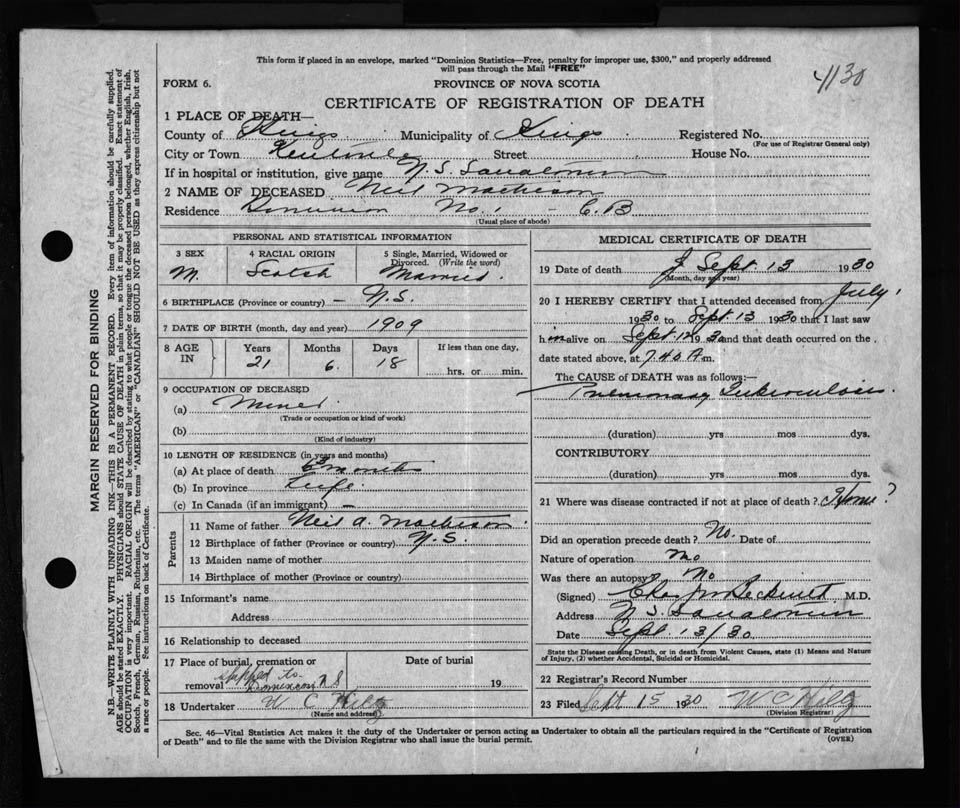 This form if placed in an envelope, marked "Dominion Statistics—Free, penalty for improper use, $300," and properly addressed
will pass through the Mail "FREE"
4130
FORM 6.
PROVINCE OF NOVA SCOTIA
CERTIFICATE OF REGISTRATION OF DEATH
1 PLACE OF DEATH—
County of Kings Municipality of Kings Registered No.
(For use of Registrar General only)
City or Town Kentville Street House No.
If in hospital or institution, give name N. S. Sanatorium
2 NAME OF DECEASED Neil Matheson
Residence Dominion No. 1 - C.B
(Usual place of abode)
PERSONAL AND STATISTICAL INFORMATION
3 SEX M.
4 RACIAL ORIGIN Scotch
5 Single, Married, Widowed or Divorced. (Write the word) Married
6 BIRTHPLACE (Province or country) — N.S.
7 DATE OF BIRTH (month, day and year) 1909
8 AGE IN Years 21 Months 6. Days 18 If less than one day, hrs. or min.
9 OCCUPATION OF DECEASED
(a) Miner
(Trade or occupation or kind of work)
(b)
(Kind of industry)
10 LENGTH OF RESIDENCE (in years and months)
(a) At place of death months
(b) In province Life
(c) In Canada (if an immigrant) —
Parents
11 Name of father Neil A. Matheson
12 Birthplace of father (Province or country) N.S.
13 Maiden name of mother
14 Birthplace of mother (Province or country)
15 Informant's name
Address
16 Relationship to deceased
17 Place of burial, cremation or removal shipped to Dominion N S
Date of burial 19
18 Undertaker W C Hiltz
(Name and address)
MEDICAL CERTIFICATE OF DEATH
19 Date of death Sept 13 1930
(Month, day and year)
20 I HEREBY CERTIFY that I attended deceased from July
1930 to Sept 13 1930 that I last saw
him alive on Sept 12 1930 and that death occurred on the
date stated above, at 7.40 A m.
The CAUSE of DEATH was as follows:—
Pulmonary Tuberculosis
(duration) yrs mos dys.
CONTRIBUTORY
(duration) yrs mos dys.
21 Where was disease contracted if not at place of death? Home?
Did an operation precede death? No. Date of
Nature of operation No
Was there an autopsy? No
(Signed) M.D.
Address N S Sanatorium
Date Sept 13/30
State the Disease causing Death, or in death from Violent Causes, state (1) Means and Nature
of Injury, (2) whether Accidental, Suicidal or Homicidal.
22 Registrar's Record Number
23 Filed Sept 15 1930 W C Hiltz
(Division Registrar)
Sec. 46—Vital Statistics Act makes it the duty of the Undertaker or person acting as Undertaker to obtain all the particulars required in the "Certificate of Registration
of Death" and to file the same with the Division Registrar who shall issue the burial permit.
(OVER)
MARGIN RESERVED FOR BINDING
N.B.—WRITE PLAINLY WITH UNFADING INK—THIS IS A PERMANENT RECORD. Every item of information should be carefully supplied.
AGE should be stated EXACTLY. PHYSICIANS should STATE CAUSE OF DEATH in plain terms, so that it may be properly classified. Exact statement of
OCCUPATION is very important. RACIAL ORIGIN will be described by stating to what people or tongue the deceased person belonged, whether English, Irish,
Scotch, French, German, Russian, Ruthenian, etc. The terms "AMERICAN" or "CANADIAN" SHOULD NOT BE USED as they express citizenship but not
a race or people. See instructions on back of Certificate.